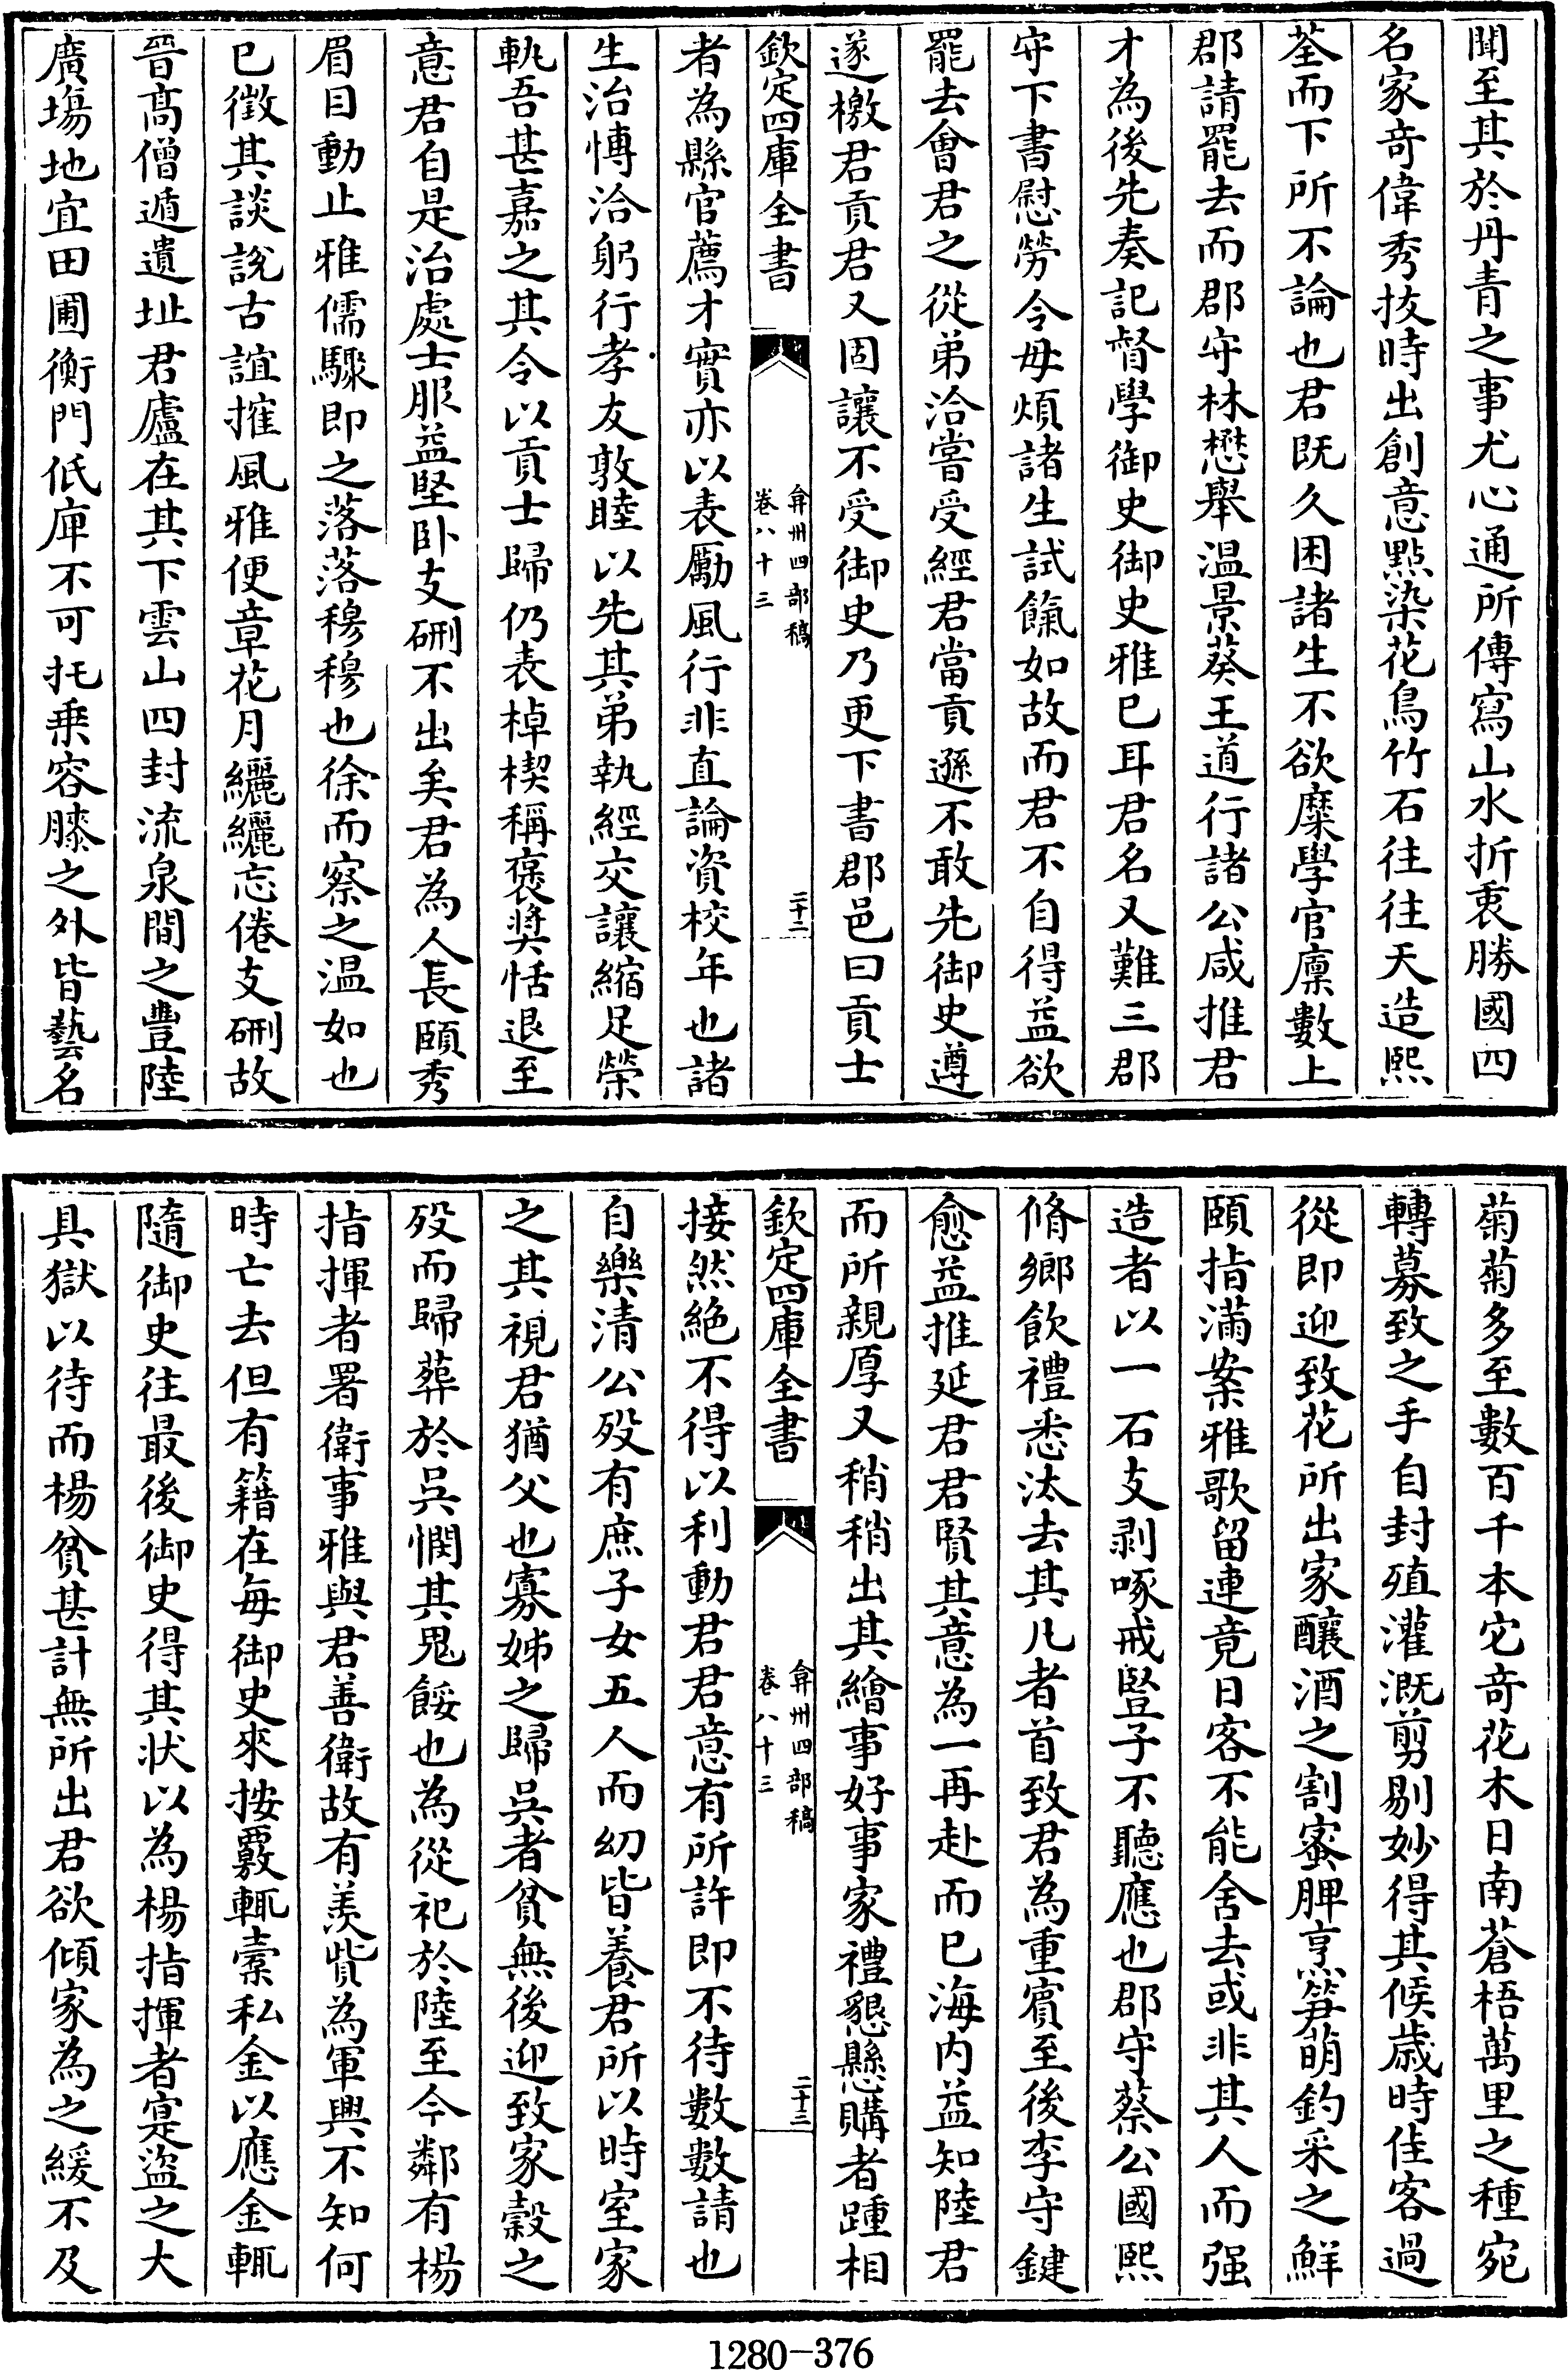 聞至其於丹青之事尤心通所傳寫山水折衷勝國四
名家竒偉秀拔時出創意㸃染花鳥竹石往往天造熙
荃而下所不論也君既久困諸生不欲糜學官廩數上
郡請罷去而郡守林懋舉温景葵王道行諸公咸推君
才為後先奏記督學御史御史雅已耳君名又難三郡
守下書慰勞令毋煩諸生試餼如故而君不自得益欲
罷去會君之從弟洽嘗受經君當貢遜不敢先御史遵
遂檄君貢君又固讓不受御史乃更下書郡邑曰貢士
欽定四庫全書
弇州四部稿
卷八十三
二十二
者為縣官薦才實亦以表勵風行非直論資校年也諸
生治博洽躬行孝友敦睦以先其弟執經交讓縮足榮
軌吾甚嘉之其令以貢士歸仍表棹楔稱褒奬恬退至
意君自是治處士服益堅卧支硎不出矣君為人長頤秀
眉目動止雅儒驟即之落落穆穆也徐而察之温如也
已徵其談說古誼搉風雅便章花月纚纚忘倦支硎故
晉髙僧遁遺址君廬在其下雲山四封流泉間之豐陸
廣場地宜田圃衡門低庳不可托乗容膝之外皆藝名
菊菊多至數百千本它竒花木日南蒼梧萬里之種宛
轉募致之手自封殖灌溉剪剔妙得其候歲時佳客過
從即迎致花所出家釀酒之割蜜脾烹笋萌釣采之鮮
頤指滿案雅歌留連竟日客不能舍去或非其人而强
造者以一石支剥啄戒豎子不聽應也郡守蔡公國熙
脩鄉飲禮悉汰去其凡者首致君為重賓至後李守鍵
愈益推延君君賢其意為一再赴而已海内益知陸君
而所親厚又稍稍出其繪事好事家禮懇懸購者踵相
欽定四庫全書
弇州四部稿
卷八十三
二十三
接然絶不得以利動君君意有所許即不待數數請也
自樂清公殁有庶子女五人而幼皆養君所以時室家
之其視君猶父也寡姊之歸吳者貧無後迎致家穀之
殁而歸葬於吳憫其鬼餒也為從祀於陸至今鄰有楊
指揮者署衛事雅與君善衛故有羡貲為軍興不知何
時亡去但有籍在每御史來按覈輒索私金以應金輒
隨御史往最後御史得其状以為楊指揮者寔盜之大
具獄以待而楊貧甚計無所出君欲傾家為之緩不及
1280-376